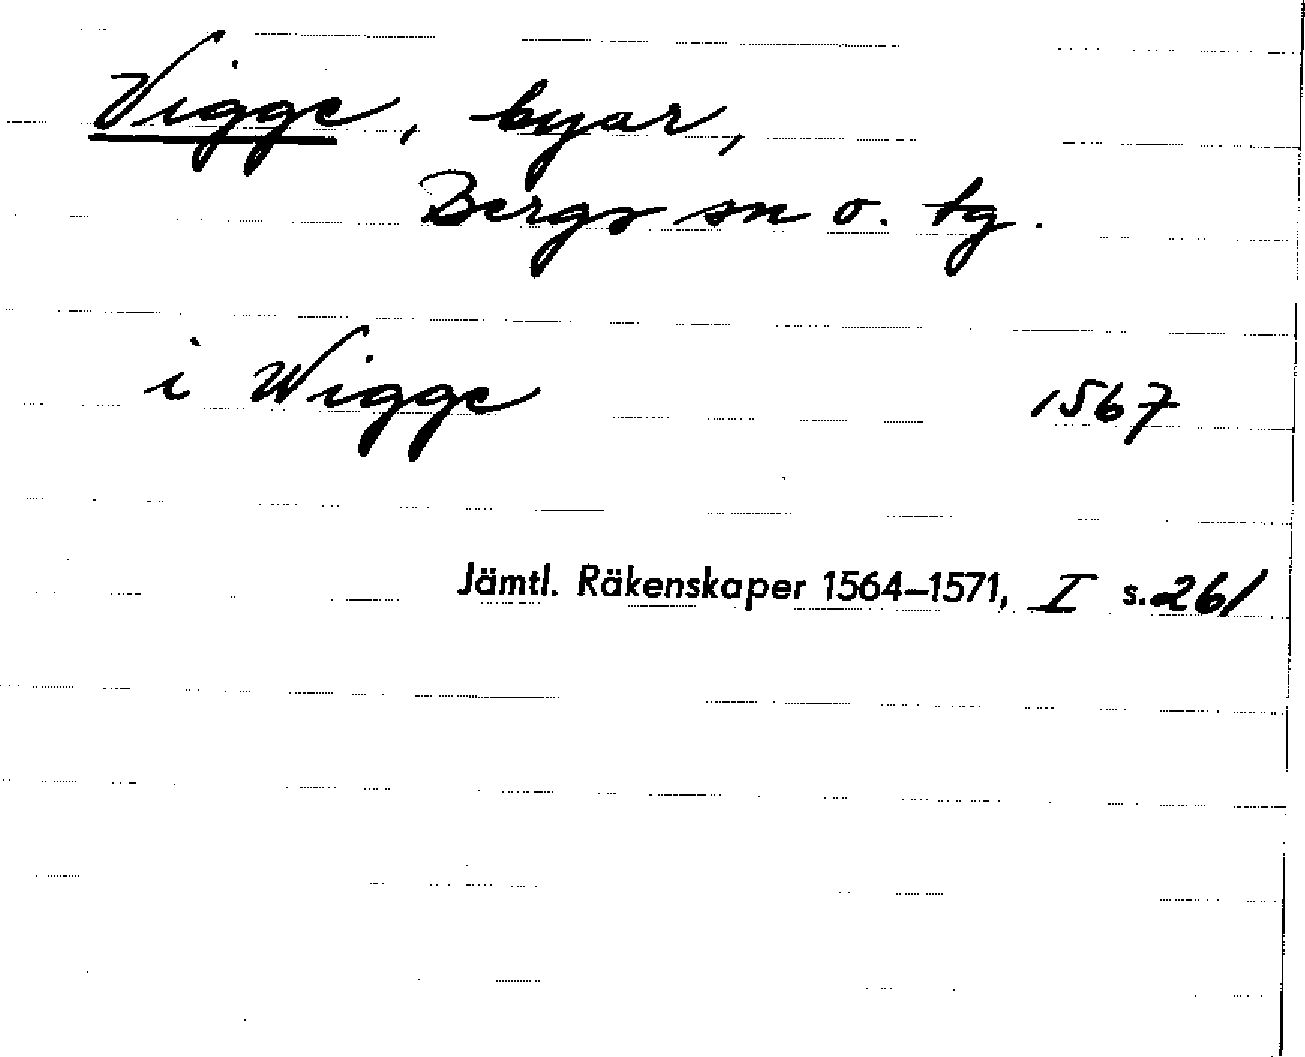 Vigge, byar,
Bergs sn o. tg.
i Wigge 1567
Jämtl. Räkenskaper 1564–1571, I s. 261